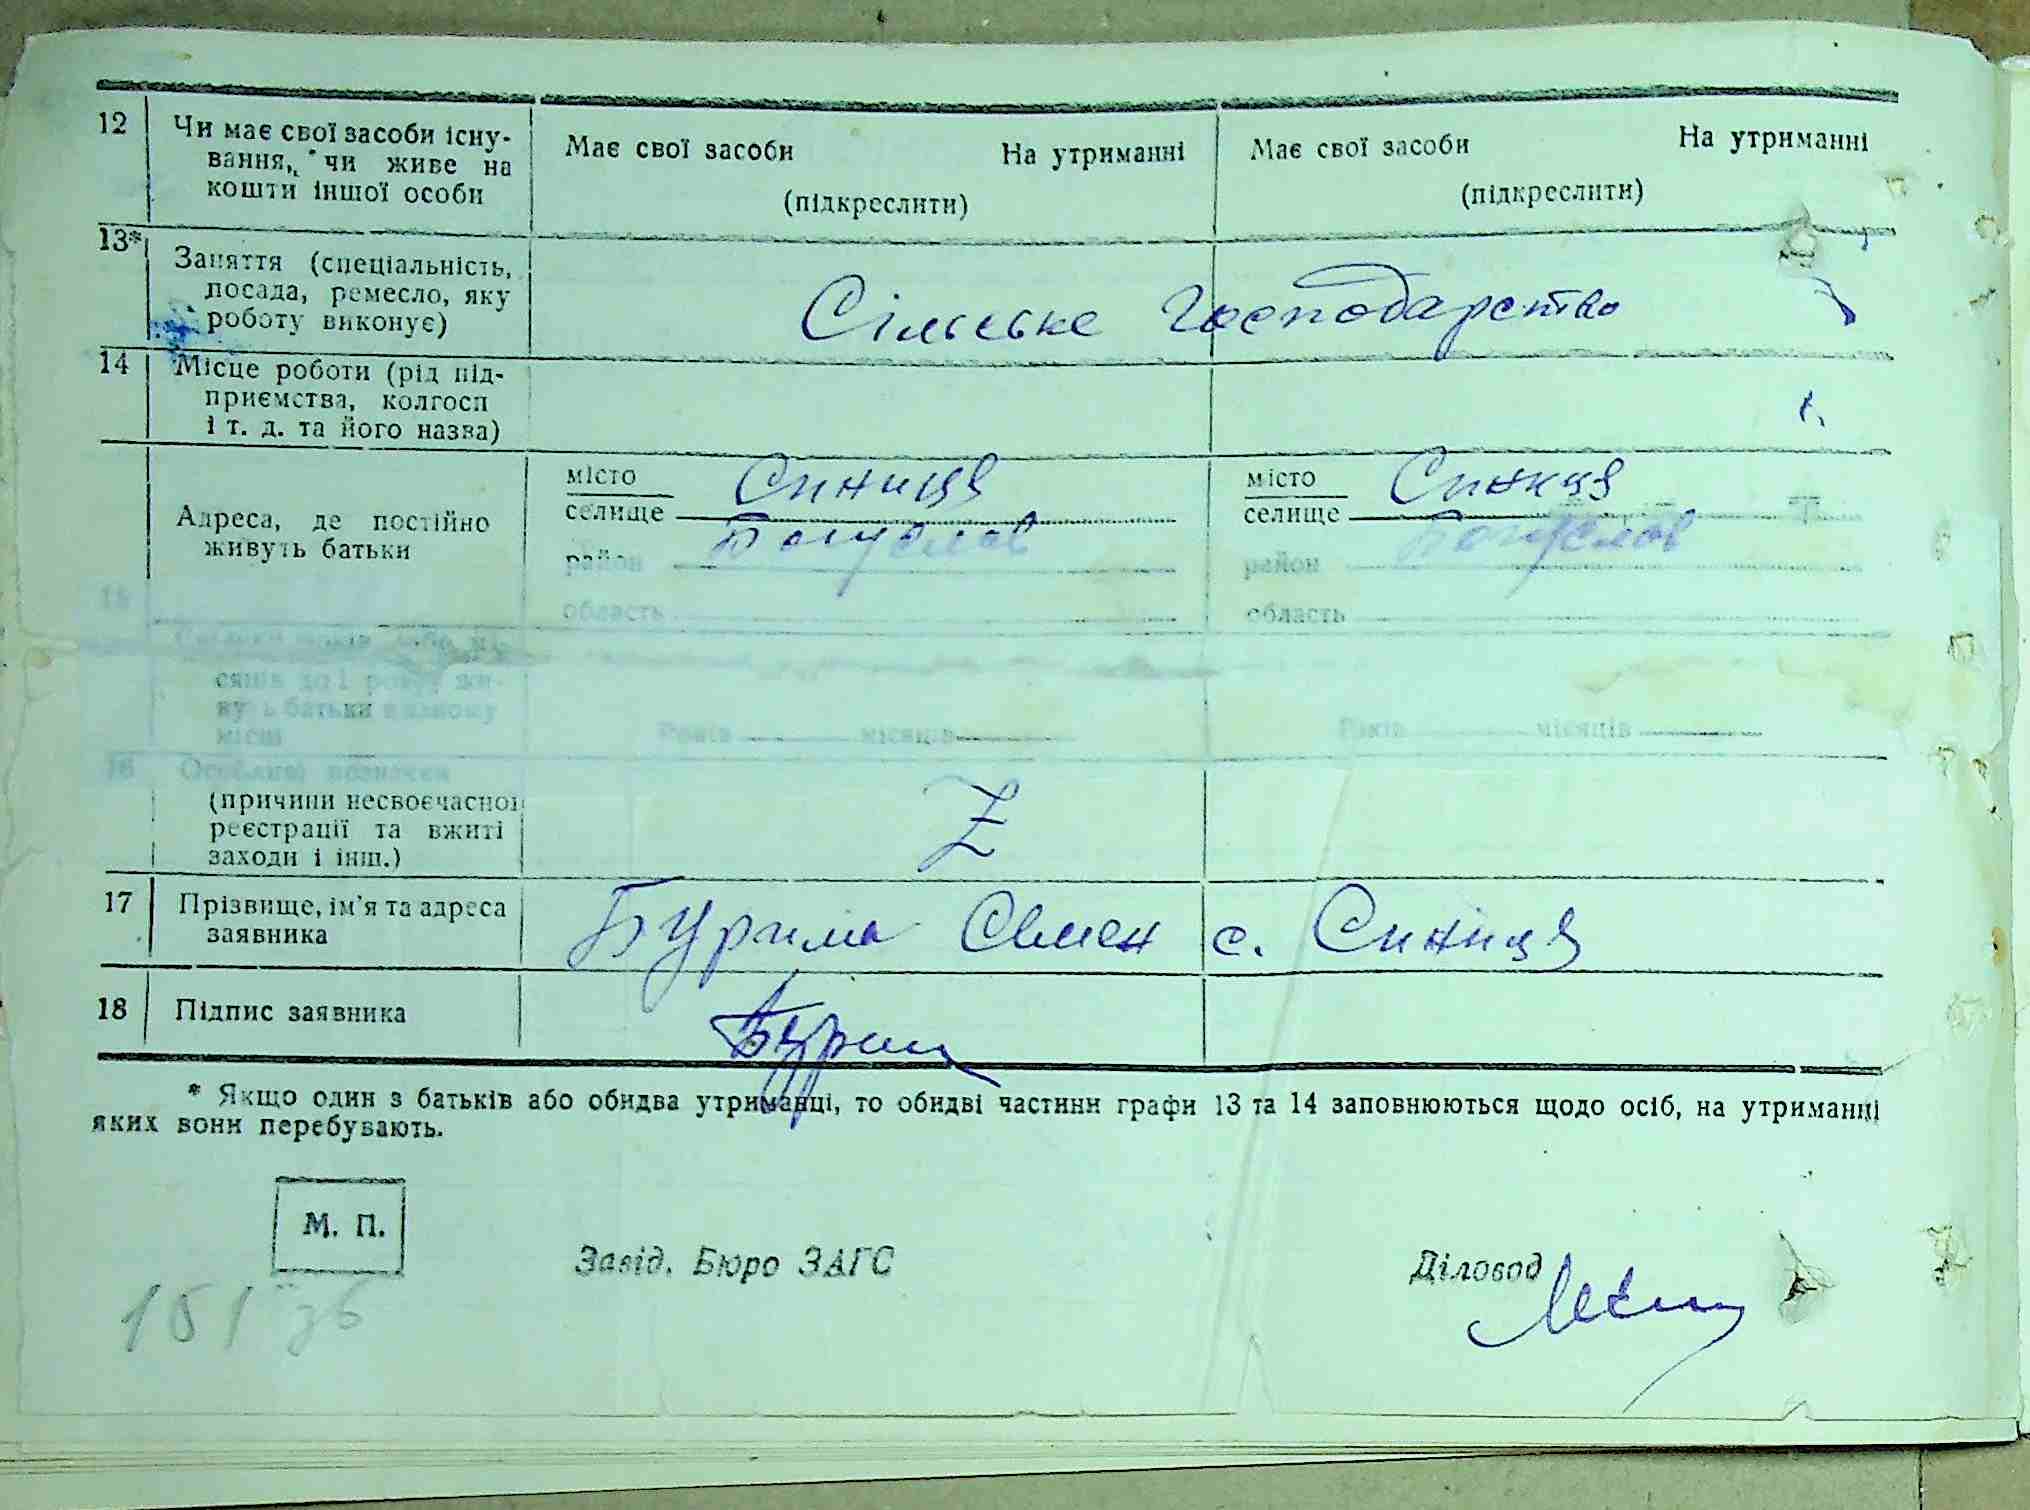 12 Чи має свої засоби існу-
вання, чи живе на
кошти іншої особи
Має свої засоби На утриманні
(підкреслити)
Має свої засоби На утриманні
(підкреслити)
13* Заняття (спеціальність,
посада, ремесло, яку
роботу виконує)
Сільське Господарство
14 Місце роботи (рід під-
приємства, колгосп
і т. д. та його назва)
15 Адреса, де постійно
живуть батьки
місто Синиця
селище
район Богуслав
область
місто Синиця
селище
район Богуслав
область
Скільки років або мі-
сяців до 1 року жи-
вуть батьки в цьому
місці
Років місяців
Років місяців
16 Особливі позначки
(причини несвоєчасної
реєстрації та вжиті
заходи і інш.)
Z
17 Прізвище, ім'я та адреса
заявника
Бурима Семен с. Синиця
18 Підпис заявника
Бурим
* Якщо один з батьків або обидва утриманці, то обидві частини графи 13 та 14 заповнюються щодо осіб, на утриманні
яких вони перебувають.
М. П.
Завід. Бюро ЗАГС
Діловод
151 зб